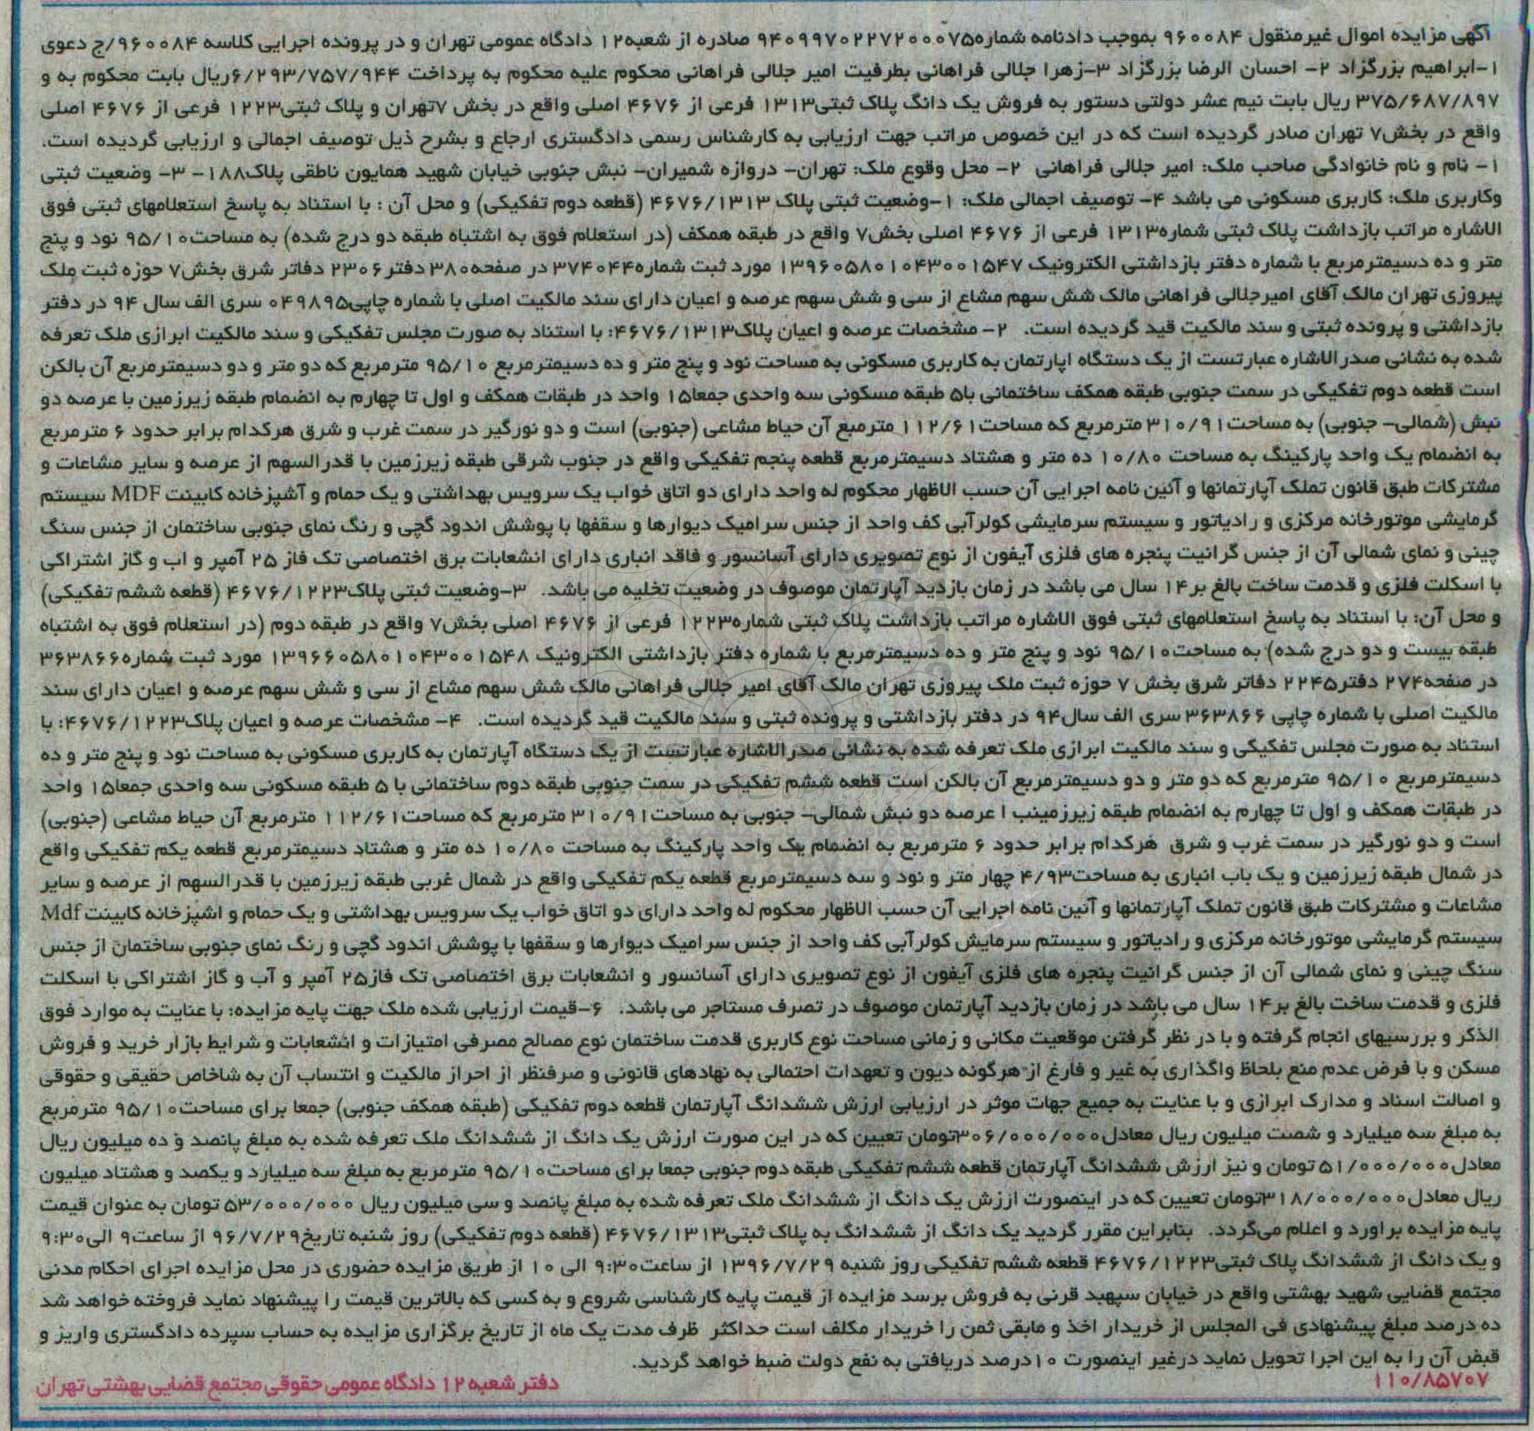 آگهی مزایده اموال غیرمنقول ۹۶۰۰۸۴ بموجب دادنامه شماره۹۴۰۹۹۷۰۲۲۷۲۰۰۰۷۵ صادره از شعبه۱۲ دادگاه عمومی تهران و در پرونده اجرایی کلاسه ۹۶۰۰۸۴/ج دعوی
۱-ابراهیم بزرگزاد ۲- احسان الرضا بزرگزاد ۳-زهرا جلالی فراهانی بطرفیت امیر جلالی فراهانی محکوم علیه محکوم به پرداخت ۶/۲۹۳/۷۵۷/۹۴۴ریال بابت محکوم به و
۳۷۵/۶۸۷/۸۹۷ ریال بابت نیم عشر دولتی دستور به فروش یک دانگ پلاک ثبتی۱۳۱۳ فرعی از ۴۶۷۶ اصلی واقع در بخش ۷تهران و پلاک ثبتی۱۲۲۳ فرعی از ۴۶۷۶ اصلی
واقع در بخش۷ تهران صادر گردیده است که در این خصوص مراتب جهت ارزیابی به کارشناس رسمی دادگستری ارجاع و بشرح ذیل توصیف اجمالی و ارزیابی گردیده است.
۱- نام و نام خانوادگی صاحب ملک: امیر جلالی فراهانی ۲- محل وقوع ملک: تهران- دروازه شمیران- نبش جنوبی خیابان شهید همایون ناطقی پلاک۱۸۸- ۳- وضعیت ثبتی
وکاربری ملک: کاربری مسکونی می باشد ۴- توصیف اجمالی ملک: ۱-وضعیت ثبتی پلاک ۴۶۷۶/۱۳۱۳ (قطعه دوم تفکیکی) و محل آن : با استناد به پاسخ استعلامهای ثبتی فوق
الاشاره مراتب بازداشت پلاک ثبتی شماره۱۳۱۳ فرعی از ۴۶۷۶ اصلی بخش۷ واقع در طبقه همکف (در استعلام فوق به اشتباه طبقه دو درج شده) به مساحت۹۵/۱۰ نود و پنج
متر و ده دسیمترمربع با شماره دفتر بازداشتی الکترونیک ۱۳۹۶۰۵۸۰۱۰۴۳۰۰۱۵۴۷ مورد ثبت شماره۳۷۴۰۴۴ در صفحه۳۸۰ دفتر۲۳۰۶ دفاتر شرق بخش۷ حوزه ثبت ملک
پیروزی تهران مالک آقای امیرجلالی فراهانی مالک شش سهم مشاع از سی و شش سهم عرصه و اعیان دارای سند مالکیت اصلی با شماره چاپی۰۴۹۸۹۵ سری الف سال ۹۴ در دفتر
بازداشتی و پرونده ثبتی و سند مالکیت قید گردیده است. ۲- مشخصات عرصه و اعیان پلاک۴۶۷۶/۱۳۱۳: با استناد به صورت مجلس تفکیکی و سند مالکیت ابرازی ملک تعرفه
شده به نشانی صدرالاشاره عبارتست از یک دستگاه اپارتمان به کاربری مسکونی به مساحت نود و پنج متر و ده دسیمترمربع ۹۵/۱۰ مترمربع که دو متر و دو دسیمترمربع آن بالکن
است قطعه دوم تفکیکی در سمت جنوبی طبقه همکف ساختمانی با۵ طبقه مسکونی سه واحدی جمعا۱۵ واحد در طبقات همکف و اول تا چهارم به انضمام طبقه زیرزمین با عرصه دو
نبش (شمالی- جنوبی) به مساحت۳۱۰/۹۱ مترمربع که مساحت۱۱۲/۶۱ مترمبع آن حیاط مشاعی (جنوبی) است و دو نورگیر در سمت غرب و شرق هرکدام برابر حدود ۶ مترمربع
به انضمام یک واحد پارکینگ به مساحت ۱۰/۸۰ ده متر و هشتاد دسیمترمربع قطعه پنجم تفکیکی واقع در جنوب شرقی طبقه زیرزمین با قدرالسهم از عرصه و سایر مشاعات و
مشترکات طبق قانون تملک آپارتمانها و آئین نامه اجرایی آن حسب الاظهار محکوم له واحد دارای دو اتاق خواب یک سرویس بهداشتی و یک حمام و آشپزخانه کابینت MDF سیستم
گرمایشی موتورخانه مرکزی و رادیاتور و سیستم سرمایشی کولرآبی کف واحد از جنس سرامیک دیوارها و سقفها با پوشش اندود گچی و رنگ نمای جنوبی ساختمان از جنس سنگ
چینی و نمای شمالی آن از جنس گرانیت پنجره های فلزی آیفون از نوع تصویری دارای آسانسور و فاقد انباری دارای انشعابات برق اختصاصی تک فاز ۲۵ آمپر و اب و گاز اشتراکی
با اسکلت فلزی و قدمت ساخت بالغ بر۱۴ سال می باشد در زمان بازدید آپارتمان موصوف در وضعیت تخلیه می باشد. ۳-وضعیت ثبتی پلاک۴۶۷۶/۱۲۲۳ (قطعه ششم تفکیکی)
و محل آن: با استناد به پاسخ استعلامهای ثبتی فوق الاشاره مراتب بازداشت پلاک ثبتی شماره۱۲۲۳ فرعی از ۴۶۷۶ اصلی بخش۷ واقع در طبقه دوم (در استعلام فوق به اشتباه
طبقه بیست و دو درج شده) به مساحت۹۵/۱۰ نود و پنج متر و ده دسیمترمربع با شماره دفتر بازداشتی الکترونیک ۱۳۹۶۶۰۵۸۰۱۰۴۳۰۰۱۵۴۸ مورد ثبت شماره۳۶۳۸۶۶
در صفحه۲۷۴ دفتر۲۲۴۵ دفاتر شرق بخش ۷ حوزه ثبت ملک پیروزی تهران مالک آقای امیر جلالی فراهانی مالک شش سهم مشاع از سی و شش سهم عرصه و اعیان دارای سند
مالکیت اصلی با شماره چاپی ۳۶۳۸۶۶ سری الف سال۹۴ در دفتر بازداشتی و پرونده ثبتی و سند مالکیت قید گردیده است. ۴- مشخصات عرصه و اعیان پلاک۴۶۷۶/۱۲۲۳: با
استناد به صورت مجلس تفکیکی و سند مالکیت ابرازی ملک تعرفه شده به نشانی صدرالاشاره عبارتست از یک دستگاه آپارتمان به کاربری مسکونی به مساحت نود و پنج متر و ده
دسیمترمربع ۹۵/۱۰ مترمربع که دو متر و دو دسیمترمربع آن بالکن است قطعه ششم تفکیکی در سمت جنوبی طبقه دوم ساختمانی با ۵ طبقه مسکونی سه واحدی جمعا۱۵ واحد
در طبقات همکف و اول تا چهارم به انضمام طبقه زیرزمینب ا عرصه دو نبش شمالی- جنوبی به مساحت۳۱۰/۹۱ مترمربع که مساحت۱۱۲/۶۱ مترمربع آن حیاط مشاعی (جنوبی)
است و دو نورگیر در سمت غرب و شرق هرکدام برابر حدود ۶ مترمربع به انضمام یک واحد پارکینگ به مساحت ۱۰/۸۰ ده متر و هشتاد دسیمترمربع قطعه یکم تفکیکی واقع
در شمال طبقه زیرزمین و یک باب انباری به مساحت۴/۹۳ چهار متر و نود و سه دسیمترمربع قطعه یکم تفکیکی واقع در شمال غربی طبقه زیرزمین با قدرالسهم از عرصه و سایر
مشاعات و مشترکات طبق قانون تملک آپارتمانها و آئین نامه اجرایی آن حسب الاظهار محکوم له واحد دارای دو اتاق خواب یک سرویس بهداشتی و یک حمام و اشپزخانه کابینت Mdf
سیستم گرمایشی موتورخانه مرکزی و رادیاتور و سیستم سرمایش کولرآبی کف واحد از جنس سرامیک دیوارها و سقفها با پوشش اندود گچی و رنگ نمای جنوبی ساختمان از جنس
سنگ چینی و نمای شمالی آن از جنس گرانیت پنجره های فلزی آیفون از نوع تصویری دارای آسانسور و انشعابات برق اختصاصی تک فاز۲۵ آمپر و آب و گاز اشتراکی با اسکلت
فلزی و قدمت ساخت بالغ بر۱۴ سال می باشد در زمان بازدید آپارتمان موصوف در تصرف مستاجر می باشد. ۶-قیمت ارزیابی شده ملک جهت پایه مزایده: با عنایت به موارد فوق
الذکر و بررسیهای انجام گرفته و با در نظر گرفتن موقعیت مکانی و زمانی مساحت نوع کاربری قدمت ساختمان نوع مصالح مصرفی امتیازات و انشعابات و شرایط بازار خرید و فروش
مسکن و با فرض عدم منع بلحاظ واگذاری به غیر و فارغ از هرگونه دیون و تعهدات احتمالی به نهادهای قانونی و صرفنظر از احراز مالکیت و انتساب آن به شاخاص حقیقی و حقوقی
و اصالت اسناد و مدارک ابرازی و با عنایت به جمیع جهات موثر در ارزیابی ارزش ششدانگ آپارتمان قطعه دوم تفکیکی (طبقه همکف جنوبی) جمعا برای مساحت۹۵/۱۰ مترمربع
به مبلغ سه میلیارد و شصت میلیون ریال معادل۳۰۶/۰۰۰/۰۰۰تومان تعیین که در این صورت ارزش یک دانگ از ششدانگ ملک تعرفه شده به مبلغ پانصد و ده میلیون ریال
معادل۵۱/۰۰۰/۰۰۰ تومان و نیز ارزش ششدانگ آپارتمان قطعه ششم تفکیکی طبقه دوم جنوبی جمعا برای مساحت۹۵/۱۰ مترمربع به مبلغ سه میلیارد و یکصد و هشتاد میلیون
ریال معادل۳۱۸/۰۰۰/۰۰۰تومان تعیین که در اینصورت ارزش یک دانگ از ششدانگ ملک تعرفه شده به مبلغ پانصد و سی میلیون ریال ۵۳/۰۰۰/۰۰۰ تومان به عنوان قیمت
پایه مزایده براورد و اعلام می‌گردد. بنابراین مقرر گردید یک دانگ از ششدانگ به پلاک ثبتی۴۶۷۶/۱۳۱۳ (قطعه دوم تفکیکی) روز شنبه تاریخ۹۶/۷/۲۹ از ساعت۹ الی۹:۳۰
و یک دانگ از ششدانگ پلاک ثبتی۴۶۷۶/۱۲۲۳ قطعه ششم تفکیکی روز شنبه ۱۳۹۶/۷/۲۹ از ساعت۹:۳۰ الی ۱۰ از طریق مزایده حضوری در محل مزایده اجرای احکام مدنی
مجتمع قضایی شهید بهشتی واقع در خیابان سپهبد قرنی به فروش برسد مزایده از قیمت پایه کارشناسی شروع و به کسی که بالاترین قیمت را پیشنهاد نماید فروخته خواهد شد
ده درصد مبلغ پیشنهادی فی المجلس از خریدار اخذ و مابقی ثمن را خریدار مکلف است حداکثر ظرف مدت یک ماه از تاریخ برگزاری مزایده به حساب سپرده دادگستری واریز و
قبض آن را به این اجرا تحویل نماید درغیر اینصورت ۱۰درصد دریافتی به نفع دولت ضبط خواهد گردید.
۱۱۰/۸۵۷۰۷ دفتر شعبه ۱۲ دادگاه عمومی حقوقی مجتمع قضایی بهشتی تهران